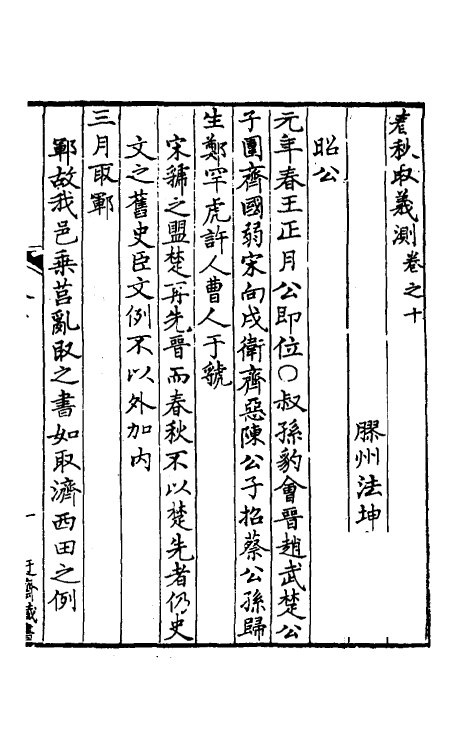 春秋取義測卷之十
膠州法坤
昭公
元年春王正月公即位○叔孫豹會晉趙武楚公
子圍齊國弱宋向戌衛齊惡陳公子招蔡公孫歸
生鄭罕虎許人曹人于虢
宋號之盟楚再先晉而春秋不以楚先者仍史
文之舊史臣文例不以外加內
三月取鄆
鄆故我邑乘莒亂取之書如取濟西田之例
一
迂齋藏書